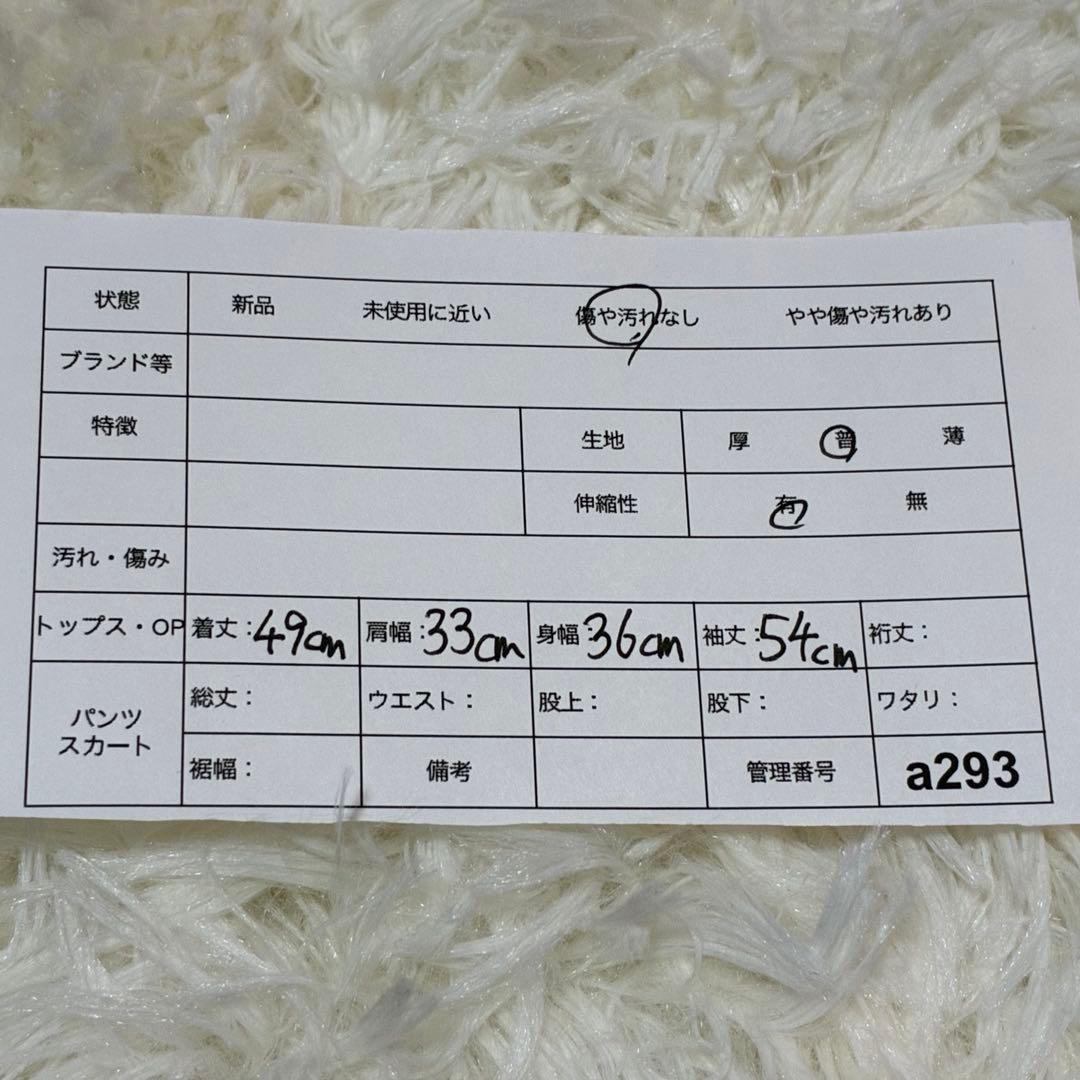 状態 新品 未使用に近い 傷や汚れなし やや傷や汚れあり
ブランド等
特徴 生地 厚 普 薄
伸縮性 有 無
汚れ・傷み
トップス・OP 着丈：49cm 肩幅：33cm 身幅：36cm 袖丈：54cm 裄丈：
パンツ
スカート
総丈： ウエスト： 股上： 股下： ワタリ：
裾幅： 備考 管理番号 a293